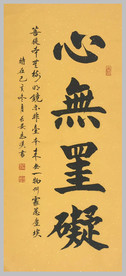 心無罣礙
菩提本無樹明鏡亦非臺本來無一物何處惹塵埃
己亥冬月
書